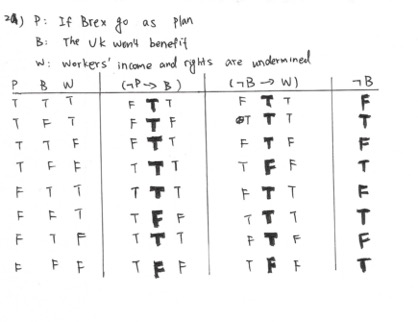 2a) P: If Brex go as plan
B: The UK won't benefit
W: Workers' income and rights are undermined
P B W (¬P → B) (¬B → W) ¬B
T T T F T T F T T F
T F T F T F T T T T
T T F F T T F T F F
T F F T T T T F F T
F T T T T T F T T F
F F T T F F T T T T
F T F T T T F T F F
F F F T F F T F F T